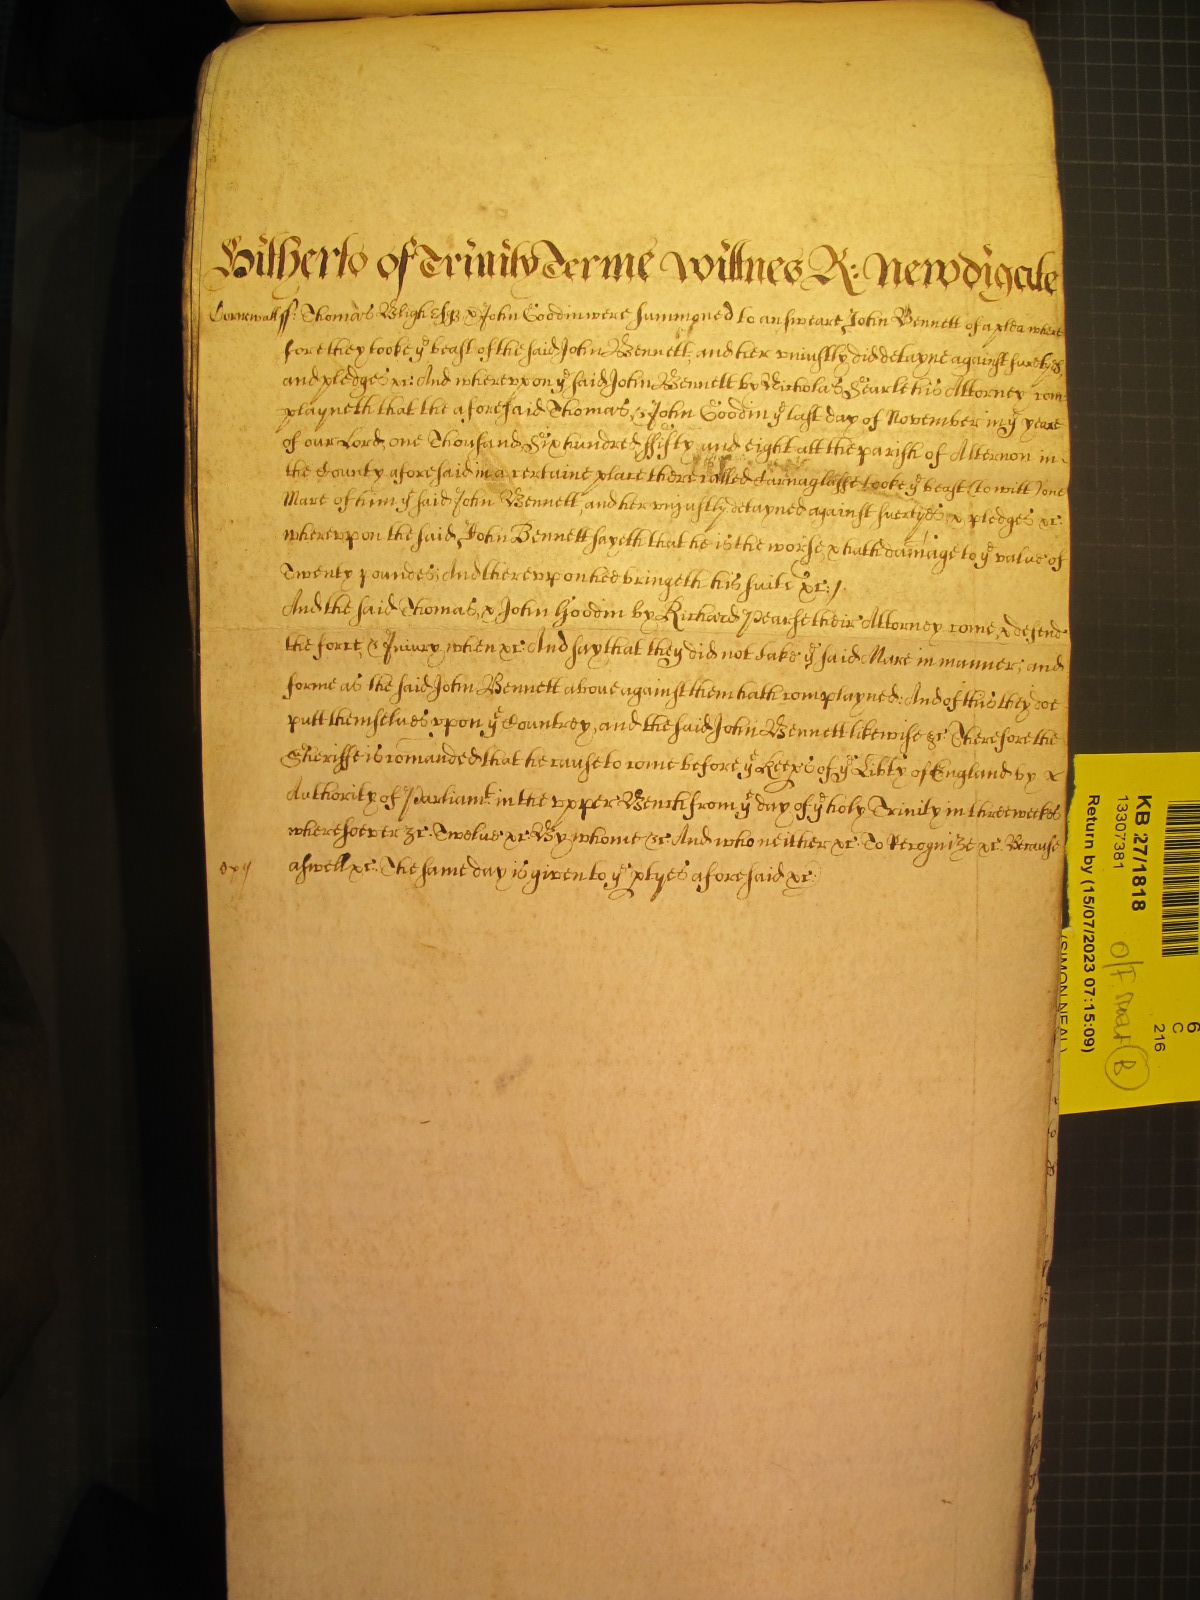 Hitherto of Trinity Terme Wittnes R: Newdigate
Cornewall ss: Thomas Bligh Esqr & John Goddin were summoned to answeare John Bennett of a plea where
fore they tooke ye beast of the said John Bennett, and her uniustly did detayne against suretyes,
and pledges &c: And whereupon ye said John Bennett by Nicholas Searle his Attorney com
playneth that the aforesaid Thomas, & John Goddin ye last day of November in ye yeare
of our Lord, one Thousand, Six hundred, ffifty, and eight att the parish of Alternon in
the County aforesaid in a certaine place there called Carnaglasse tooke ye beast (to witt) one
Mare of him ye said John Bennett, and her uniustly detayned against suertyes & pledges &c:
whereupon the said, John Bennett sayeth that he is the worse, & hath damage to ye value of
Twenty poundes; And thereupon hee bringeth his suite &c: /.
And the said Thomas, & John Goddin by Richard Pearse their Attorney come, & defend
the force, & Iniury, when &c. And say that they did not take ye said Mare in manner, and
forme as the said John Bennett above against them hath complayned: And of this they doe
putt themselves uppon ye Countrey, and the said John Bennett likewise &c. Therefore the
Sheriffe is comanded that he cause to come before ye Keeps of ye Libty of England by
Authority of Parliamt. in the upper Bench from ye day of ye holy Trinity in three weekes
wheresoever &c. Twelve &c. By whome &c. And who neither &c. To Recognize &c. Because
aswell &c. The same day is given to ye ptyes aforesaid &c:
KB 27/1818
13307381
Return by (15/07/2023 07:15:09)
(SIMON NEAL)
6
C
216
B